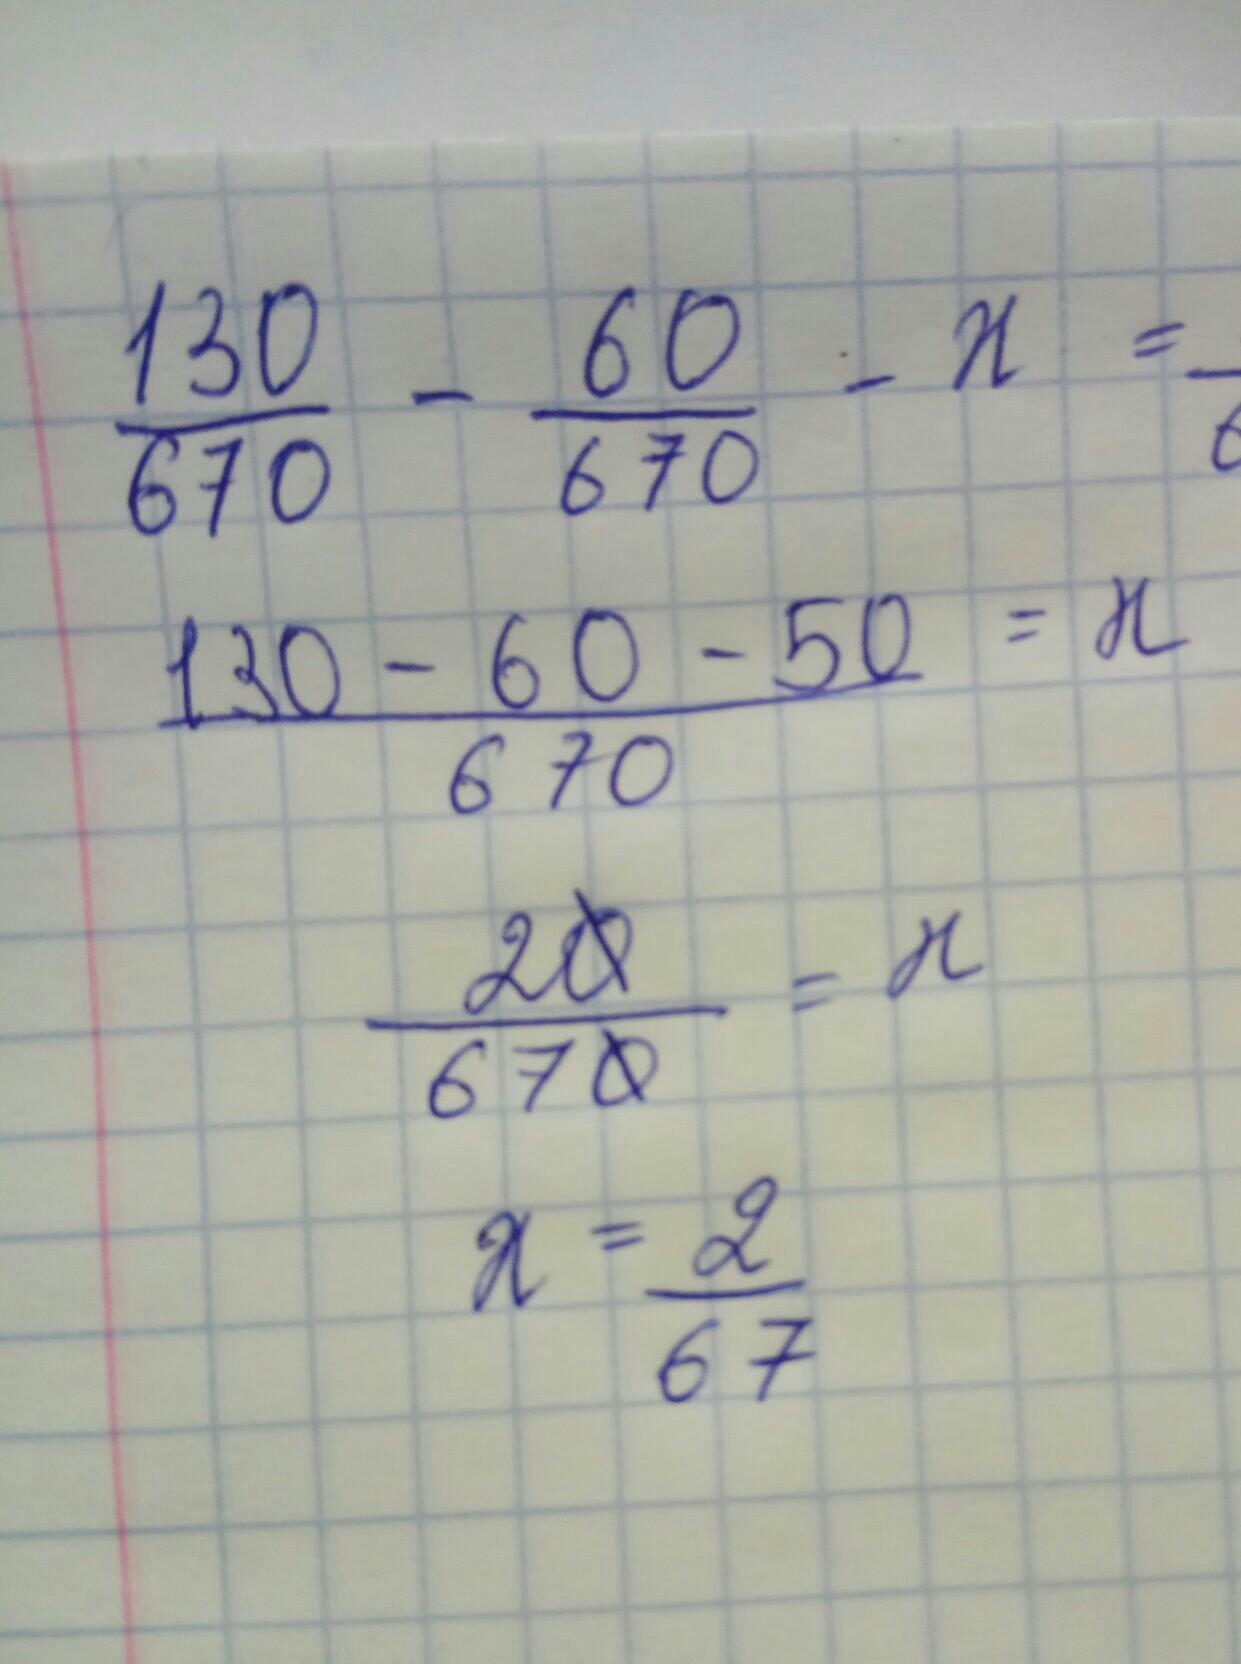 130/670 - 60/670 - x =
(130 - 60 - 50)/670 = x
20/670 = x
x = 2/67